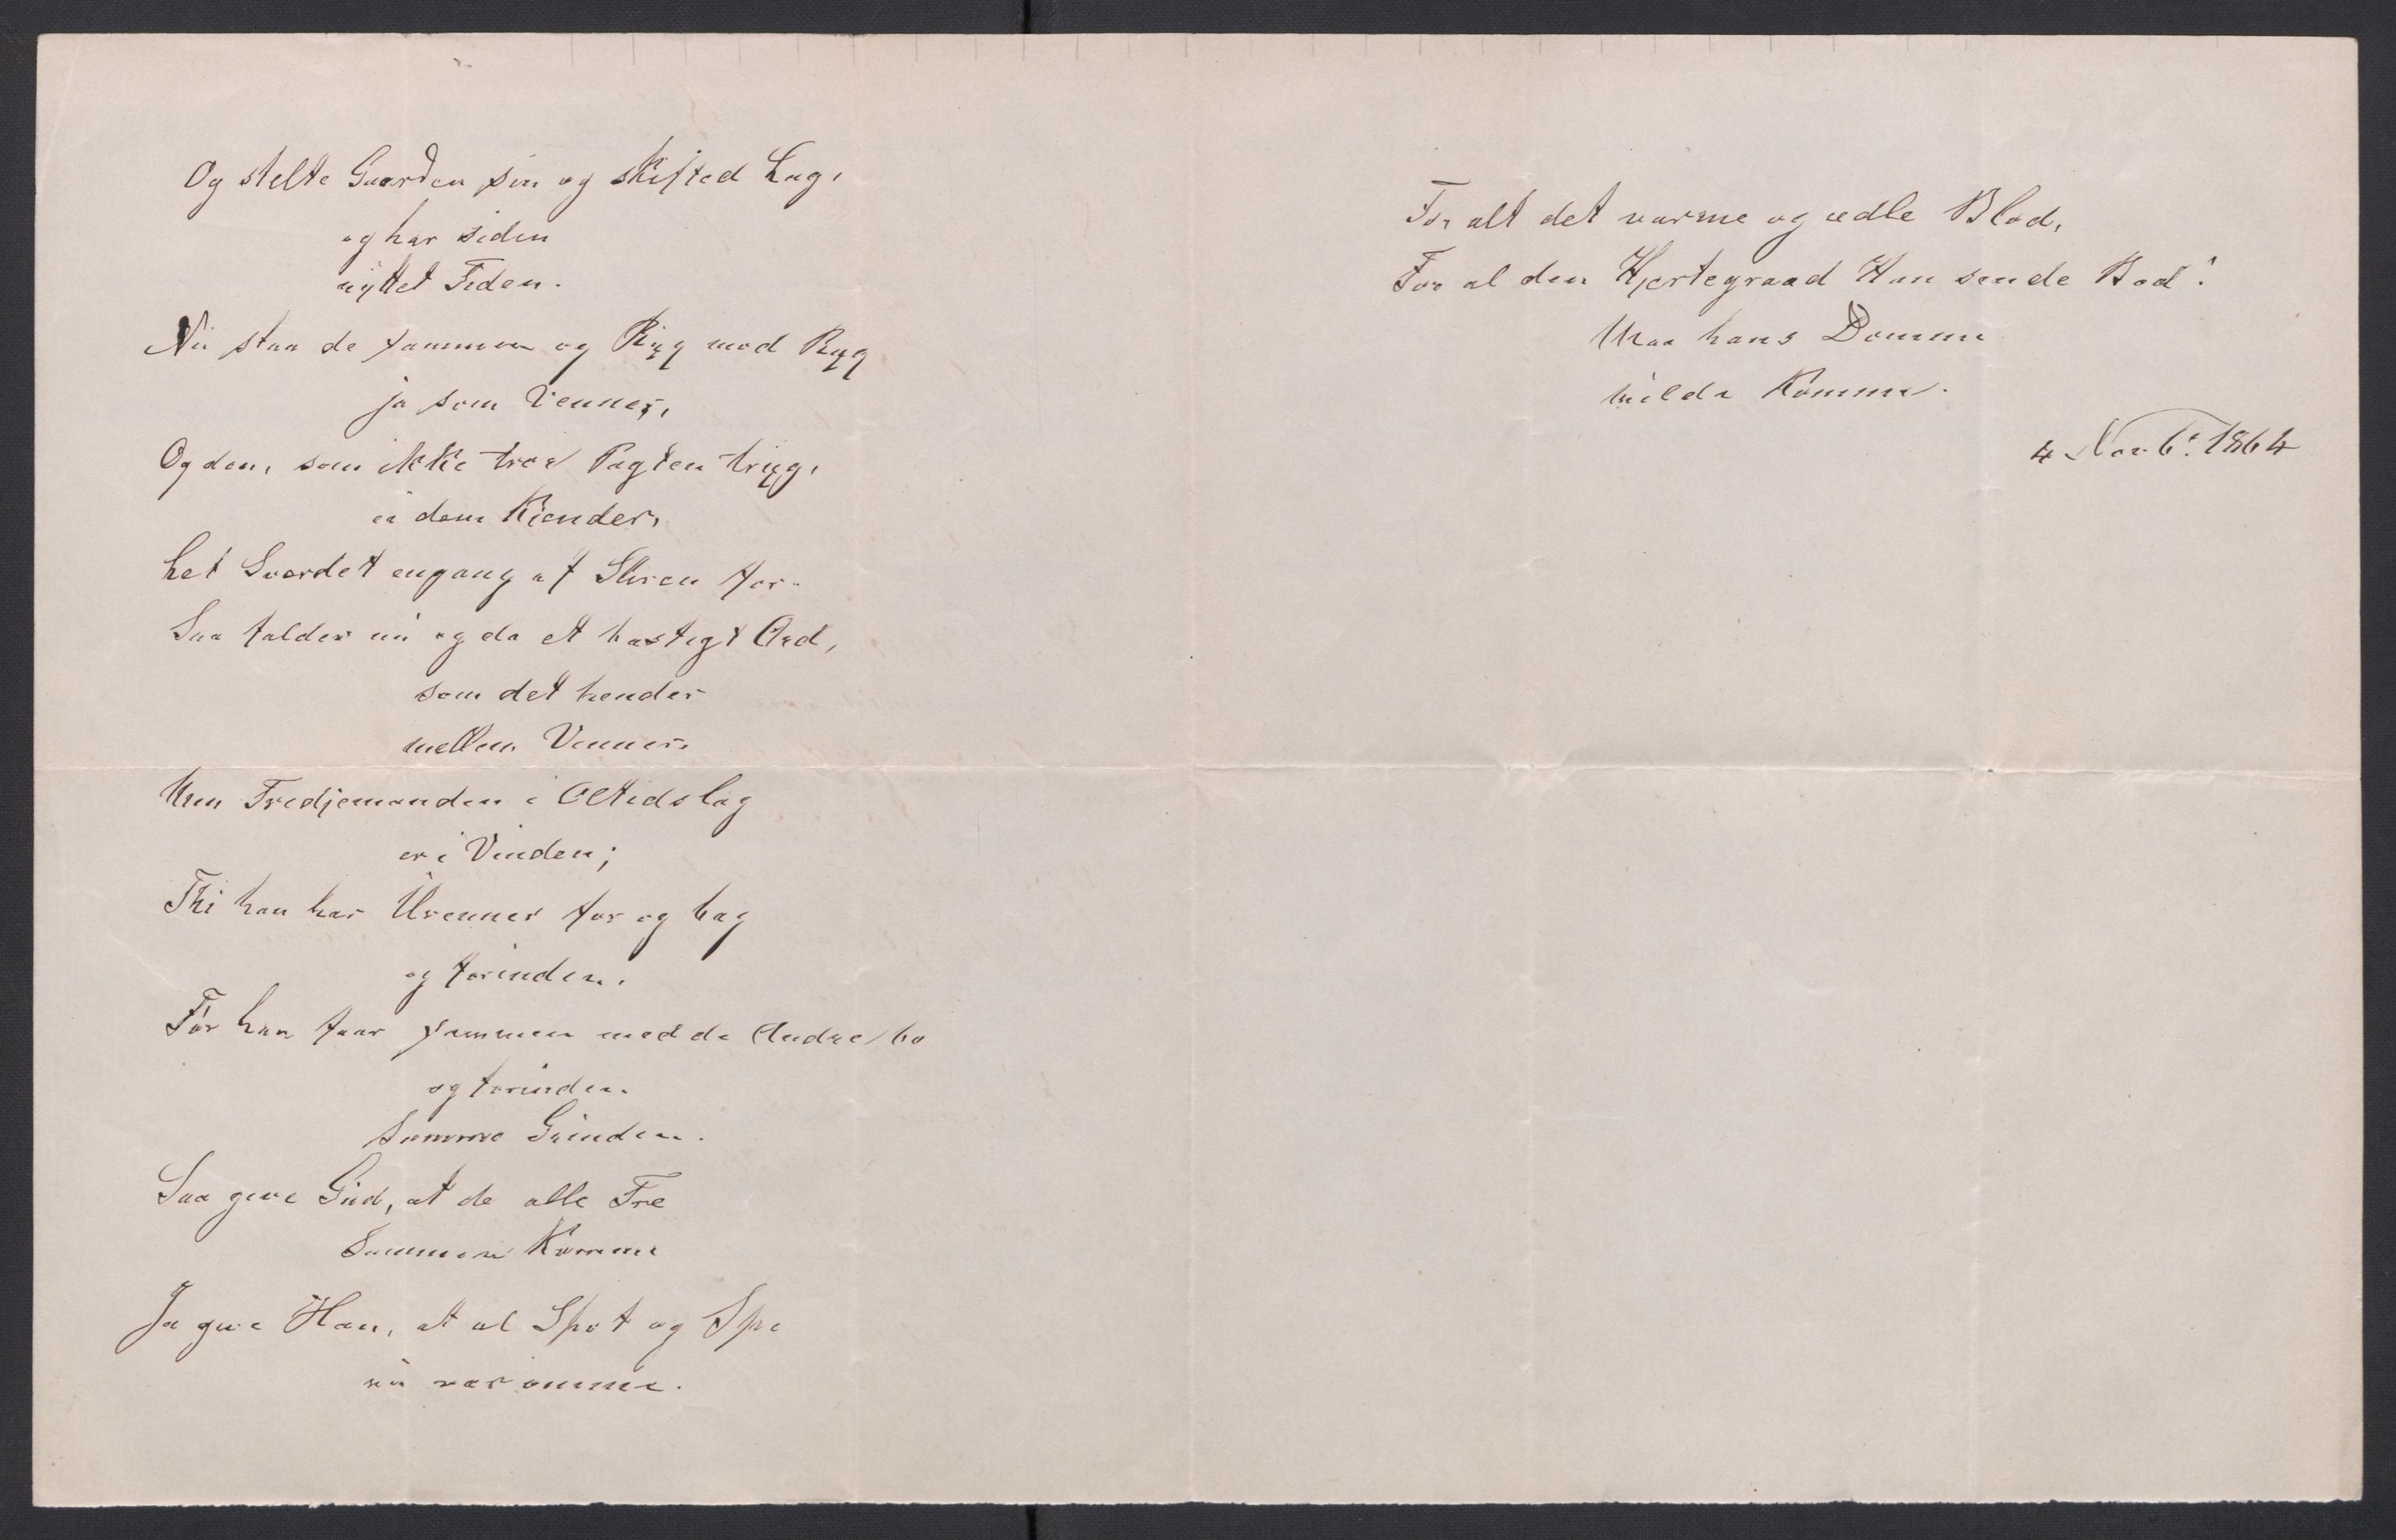 Og stelte Gaarden sin og skifted Lag,
og har siden
nyttet Tiden.
Nu staa de sammen og Ryg mod Ryg
ja som Venner,
Og den, som ikke troer Pagten tryg,
ei dem Kiender,
Let Sverdet engang af Sliren foer
Saa falder nu og da et hastigt Ord,
som det hender
mellem Venner.
Men Tredjemanden i Oltidslag
er i Vinden;
Thi han har Uvenner for og bag
og forinden.
Før han faar sammen med de Andre bo
og forinden
samme Grinden.
Saa give Gud, at de alle Tre
Sammen Komme
Ja give Han, at al Spot og Spe
nu var omme.
For alt det varme og ædle Blod,
For al den Hjertegraad Han sende Bod!
Maa hans Domme
milde Komme.
4 Novbr. 1864